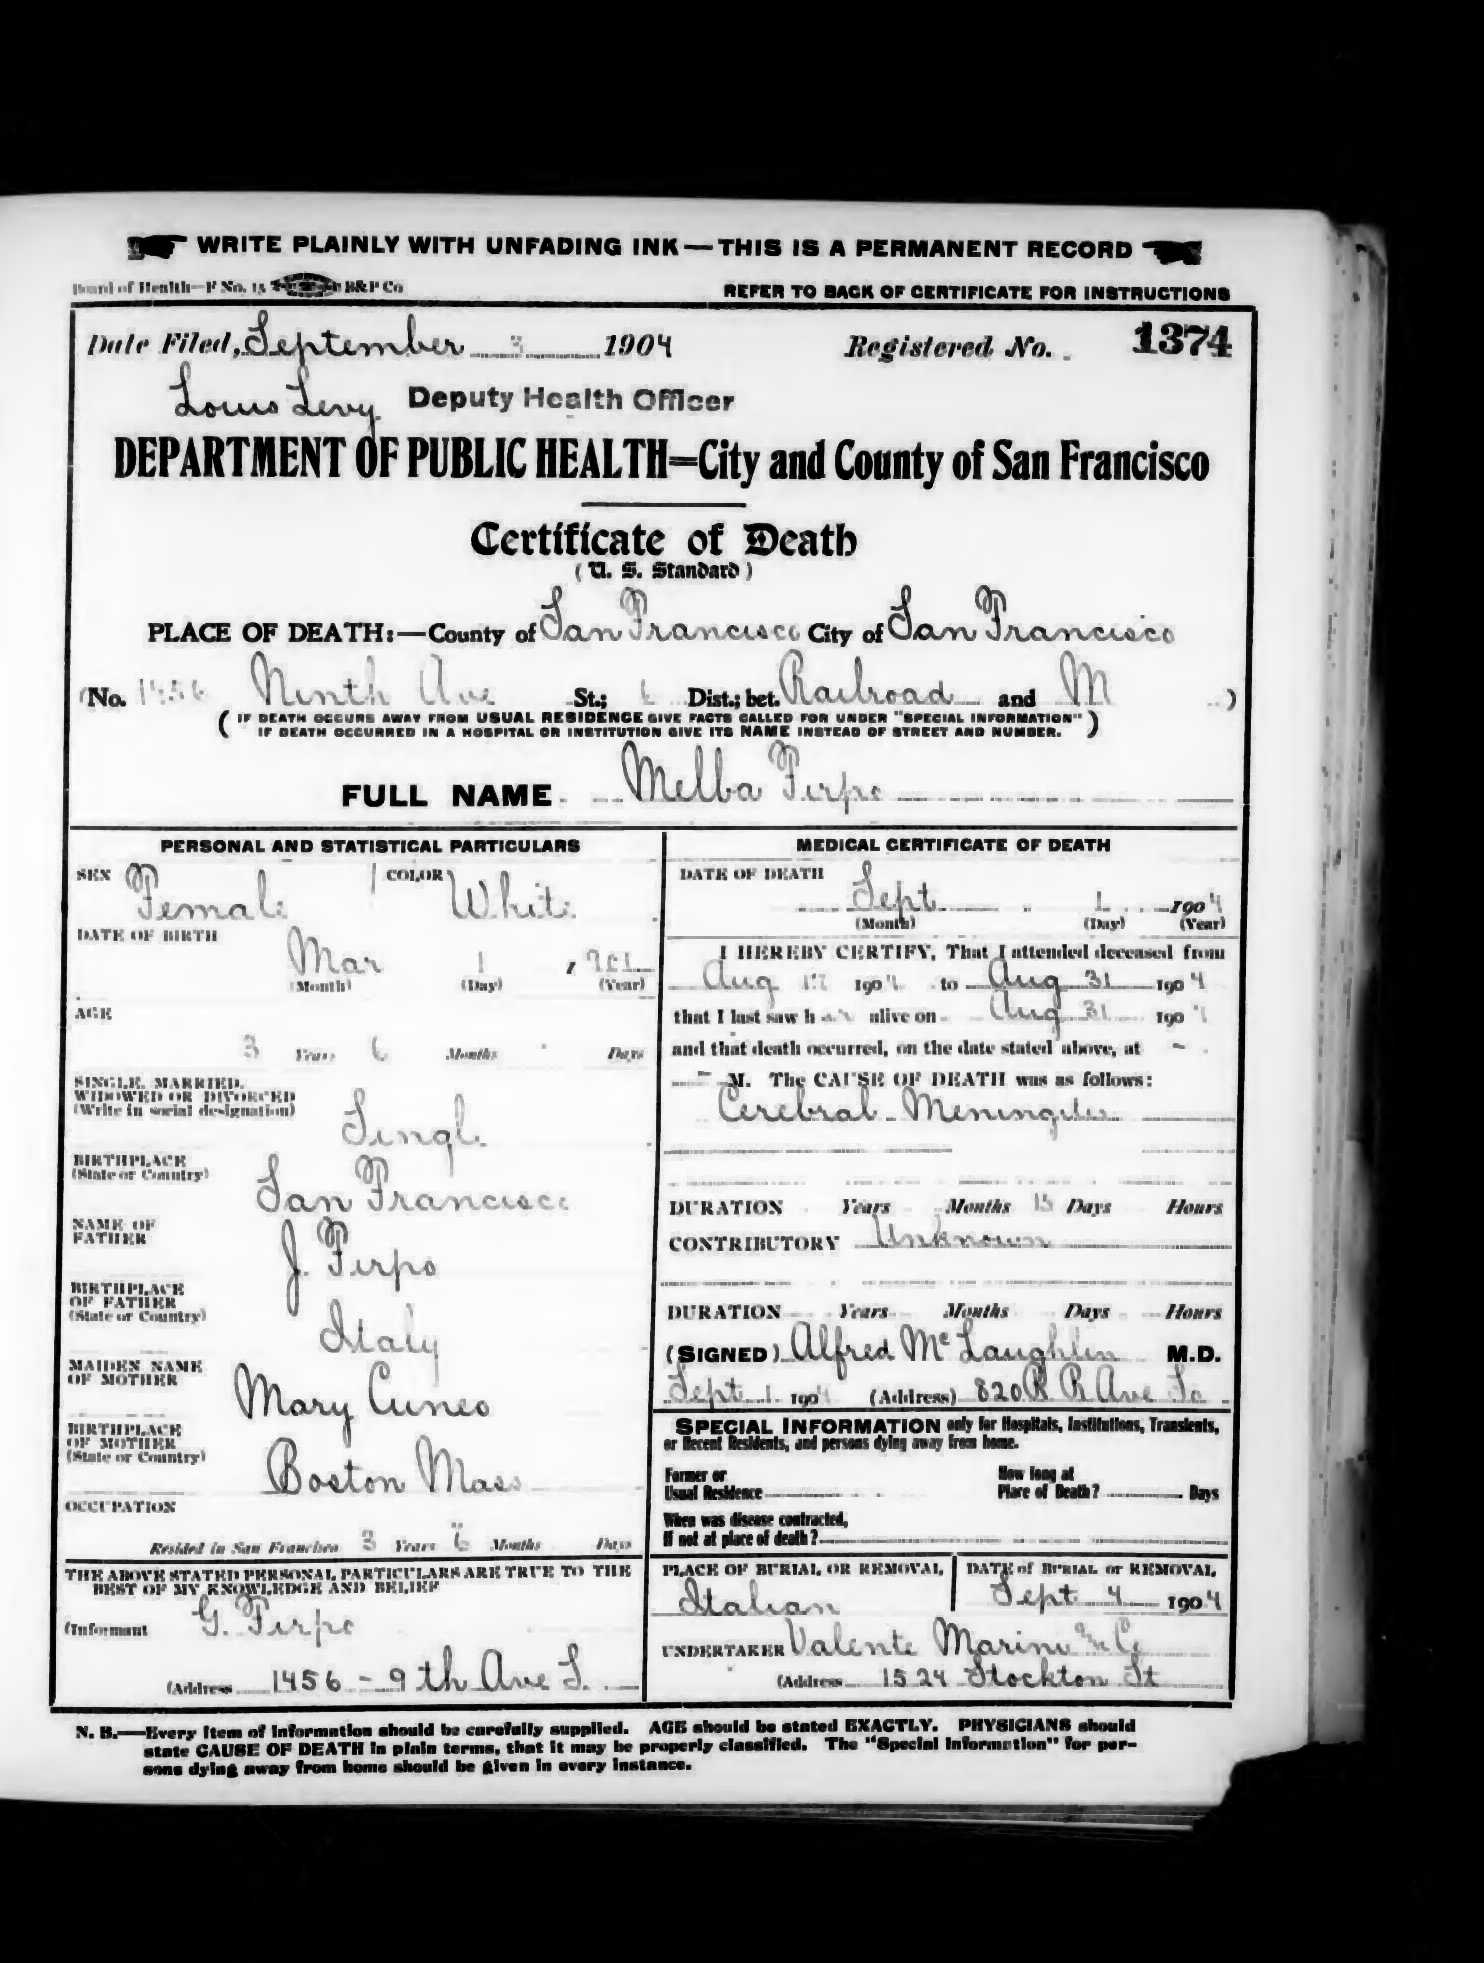 WRITE PLAINLY WITH UNFADING INK — THIS IS A PERMANENT RECORD
Board of Health—F No. 15 B&P Co
REFER TO BACK OF CERTIFICATE FOR INSTRUCTIONS
Date Filed, September 3 1904 Registered No. 1374
Louis Levy Deputy Health Officer
DEPARTMENT OF PUBLIC HEALTH=City and County of San Francisco
Certificate of Death
( U. S. Standard )
PLACE OF DEATH:—County of San Francisco City of San Francisco
(No. 1456 Ninth Ave St.; 6 Dist.; bet. Railroad and M )
( IF DEATH OCCURS AWAY FROM USUAL RESIDENCE GIVE FACTS CALLED FOR UNDER "SPECIAL INFORMATION"
IF DEATH OCCURRED IN A HOSPITAL OR INSTITUTION GIVE ITS NAME INSTEAD OF STREET AND NUMBER. )
FULL NAME Melba Firpo
PERSONAL AND STATISTICAL PARTICULARS
SEX Female COLOR White
DATE OF BIRTH
Mar 1 , 1901
(Month) (Day) (Year)
AGE
3 Years 6 Months Days
SINGLE, MARRIED,
WIDOWED OR DIVORCED
(Write in social designation)
Single
BIRTHPLACE
(State or Country)
San Francisco
NAME OF
FATHER
J. Firpo
BIRTHPLACE
OF FATHER
(State or Country)
Italy
MAIDEN NAME
OF MOTHER
Mary Cuneo
BIRTHPLACE
OF MOTHER
(State or Country)
Boston Mass
OCCUPATION
Resided in San Francisco 3 Years 6 Months Days
THE ABOVE STATED PERSONAL PARTICULARS ARE TRUE TO THE
BEST OF MY KNOWLEDGE AND BELIEF
(Informant G. Firpo
(Address 1456 - 9th Ave S.
MEDICAL CERTIFICATE OF DEATH
DATE OF DEATH
Sept 1 1904
(Month) (Day) (Year)
I HEREBY CERTIFY, That I attended deceased from
Aug 1904 to Aug 31 1904
that I last saw her alive on Aug 31 1904
and that death occurred, on the date stated above, at -
- M. The CAUSE OF DEATH was as follows:
Cerebral Meningitis
DURATION Years Months 15 Days Hours
CONTRIBUTORY Unknown
DURATION Years Months Days Hours
(SIGNED) Alfred McLaughlin M.D.
Sept 1 1904 (Address) 820 R R Ave So
SPECIAL INFORMATION only for Hospitals, Institutions, Transients,
or Recent Residents, and persons dying away from home.
Former or
Usual Residence
How long at
Place of Death? Days
When was disease contracted,
If not at place of death?
PLACE OF BURIAL OR REMOVAL
Italian
DATE of BURIAL or REMOVAL
Sept 4 1904
UNDERTAKER Valente Marini & Co
(Address 1524 Stockton St
N. B.—Every item of information should be carefully supplied. AGE should be stated EXACTLY. PHYSICIANS should
state CAUSE OF DEATH in plain terms, that it may be properly classified. The "Special Information" for per-
sons dying away from home should be given in every instance.